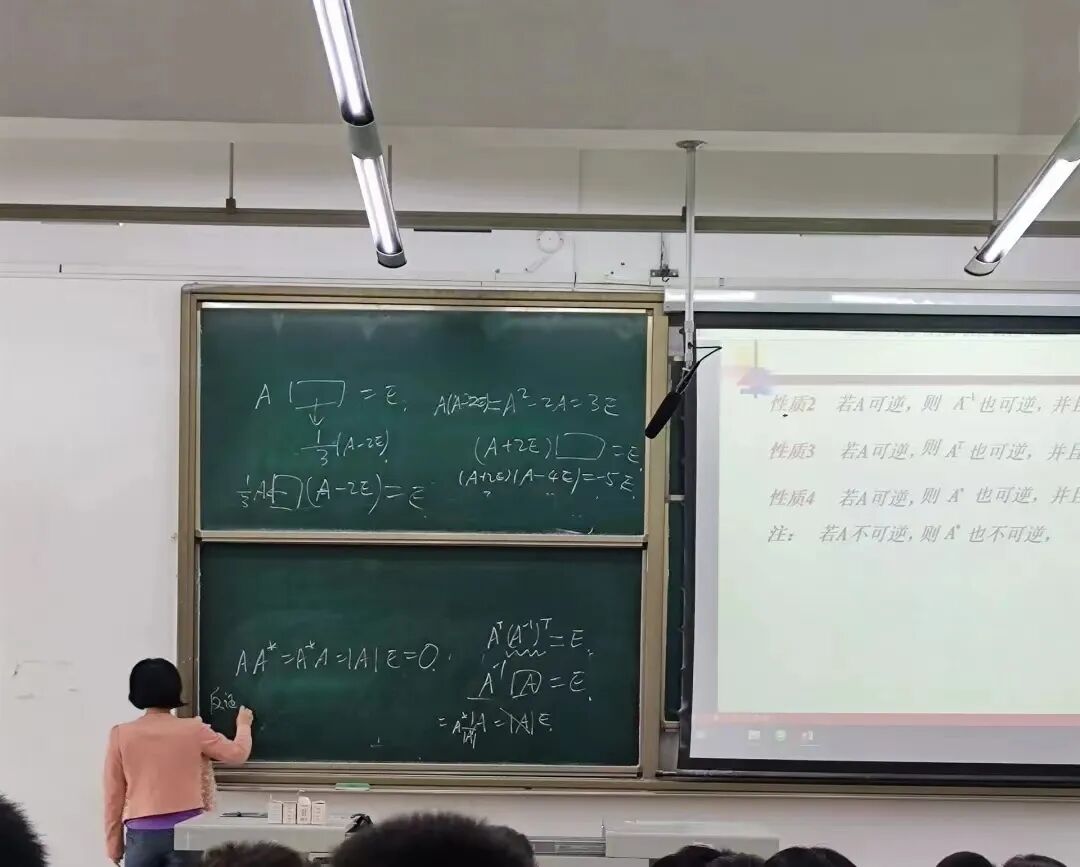 A □ = E.
1/3 (A-2E)
1/3 A □ (A-2E) = E
A(A-2E) = A² - 2A = 3E
(A+2E) □ = E
(A+2E)(A-4E) = -5E
AA* = A*A = |A|E = 0.
反证
Aᵀ(A⁻¹)ᵀ = E.
A⁻¹ A = E.
= A* 1/|A| A = |A|E.
性质2 若A可逆, 则 A⁻¹ 也可逆, 并且
性质3 若A可逆, 则 Aᵀ 也可逆, 并且
性质4 若A可逆, 则 A* 也可逆, 并且
注: 若A不可逆, 则 A* 也不可逆,